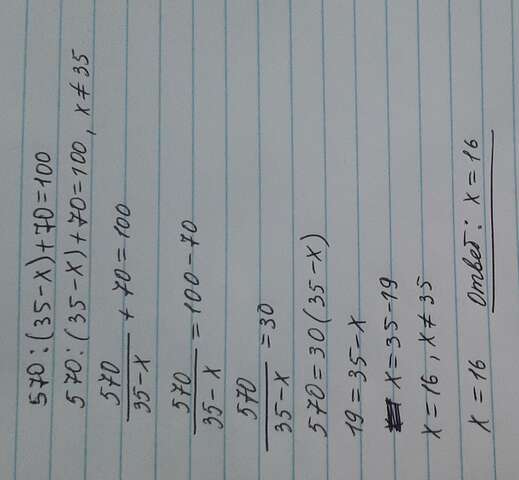 570:(35-x)+70=100
570:(35-x)+70=100, x≠35
570/35-x + 70=100
570/35-x = 100-70
570/35-x = 30
570=30(35-x)
19=35-x
x=35-19
x=16, x≠35
x=16 Ответ: x=16